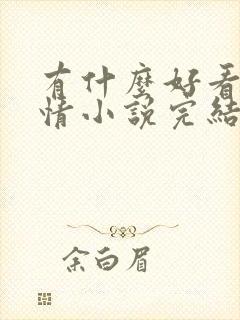 有什麼好看
情小說完結
余白眉